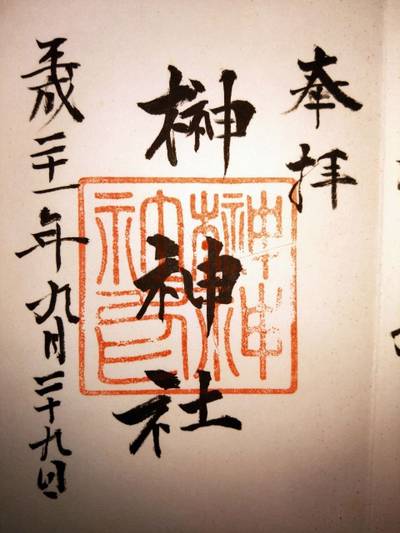 奉拝
榊神社
平成二十一年九月二十九日